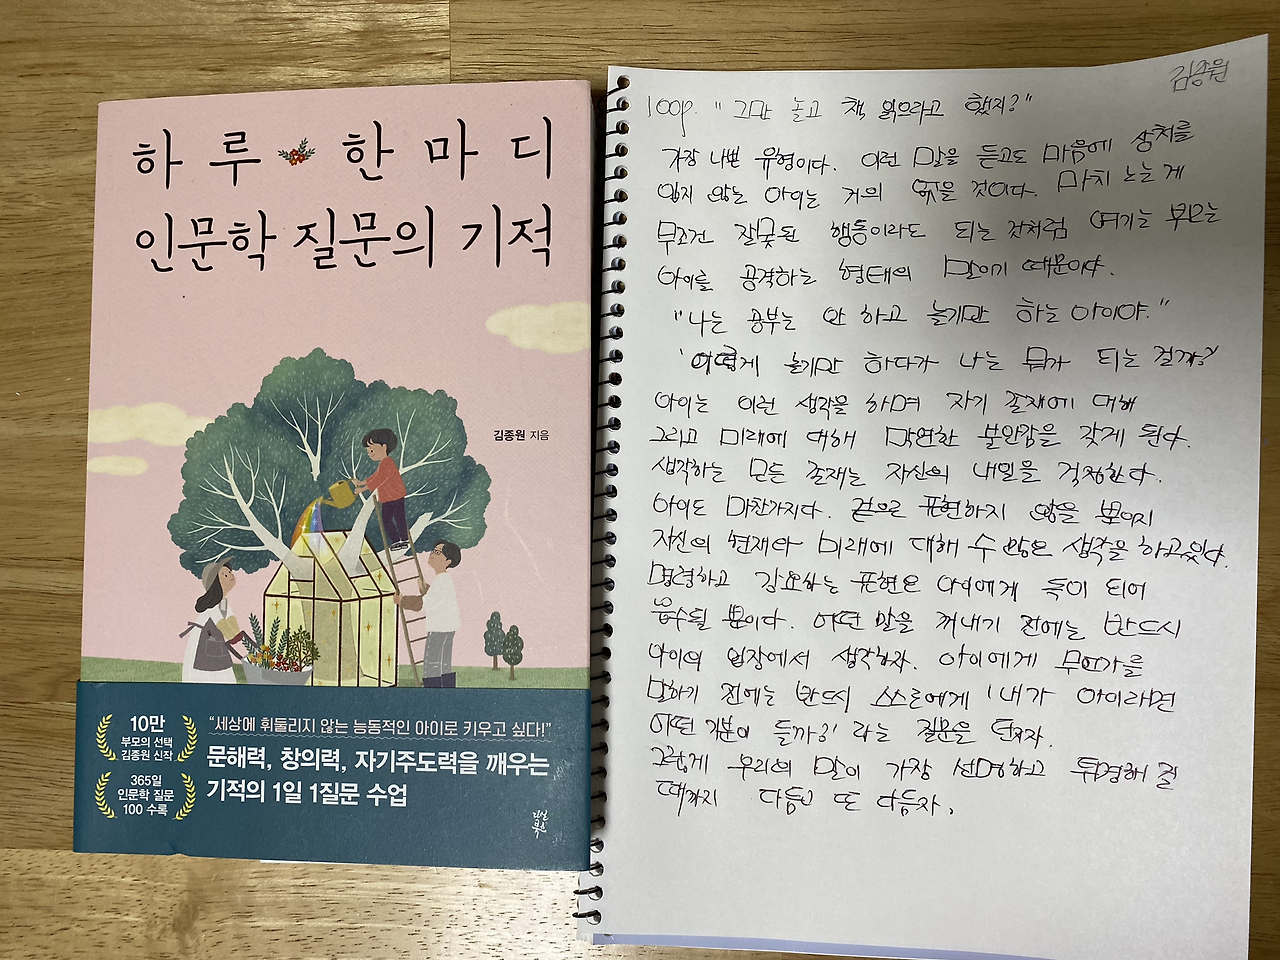 하루 한마디
인문학 질문의 기적
김종원 지음
10만
부모의 선택
김종원 신작
365일
인문학 질문
100 수록
"세상에 휘둘리지 않는 능동적인 아이로 키우고 싶다!"
문해력, 창의력, 자기주도력을 깨우는
기적의 1일 1질문 수업
김종원
100p. "그만 놀고 책 읽으라고 했지?"
가장 나쁜 유형이다. 이런 말을 듣고도 마음에 상처를
입지 않는 아이는 거의 없을 것이다. 마치 노는 게
무조건 잘못된 행동이라도 되는 것처럼 여기는 부모는
아이를 공격하는 형태의 말이기 때문이다.
"나는 공부는 안 하고 놀기만 하는 아이야."
'이렇게 놀기만 하다가 나는 뭐가 되는 걸까?'
아이는 이런 생각을 하며 자기 존재에 대해
그리고 미래에 대해 막연한 불안감을 갖게 된다.
생각하는 모든 존재는 자신의 내일을 걱정한다.
아이도 마찬가지다. 겉으로 표현하지 않을 뿐이지
자신의 현재와 미래에 대해 수 많은 생각을 하고있다.
명령하고 강요하는 표현은 아이에게 독이 되어
흡수될 뿐이다. 어떤 말을 꺼내기 전에는 반드시
아이의 입장에서 생각하자. 아이에게 무언가를
말하기 전에는 반드시 스스로에게 '내가 아이라면
어떤 기분이 들까?' 라는 질문을 던지자.
그렇게 우리의 말이 가장 선명하고 투명해 질
때까지 다듬고 또 다듬자.